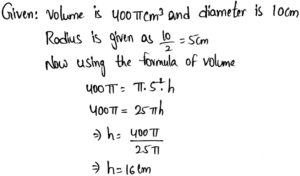 Given: Volume is 400πcm³ and diameter is 10cm
Radius is given as 10/2 = 5cm
Now using the formula of volume
400π = π.5².h
400π = 25πh
⇒ h = 400π/25π
⇒ h = 16cm